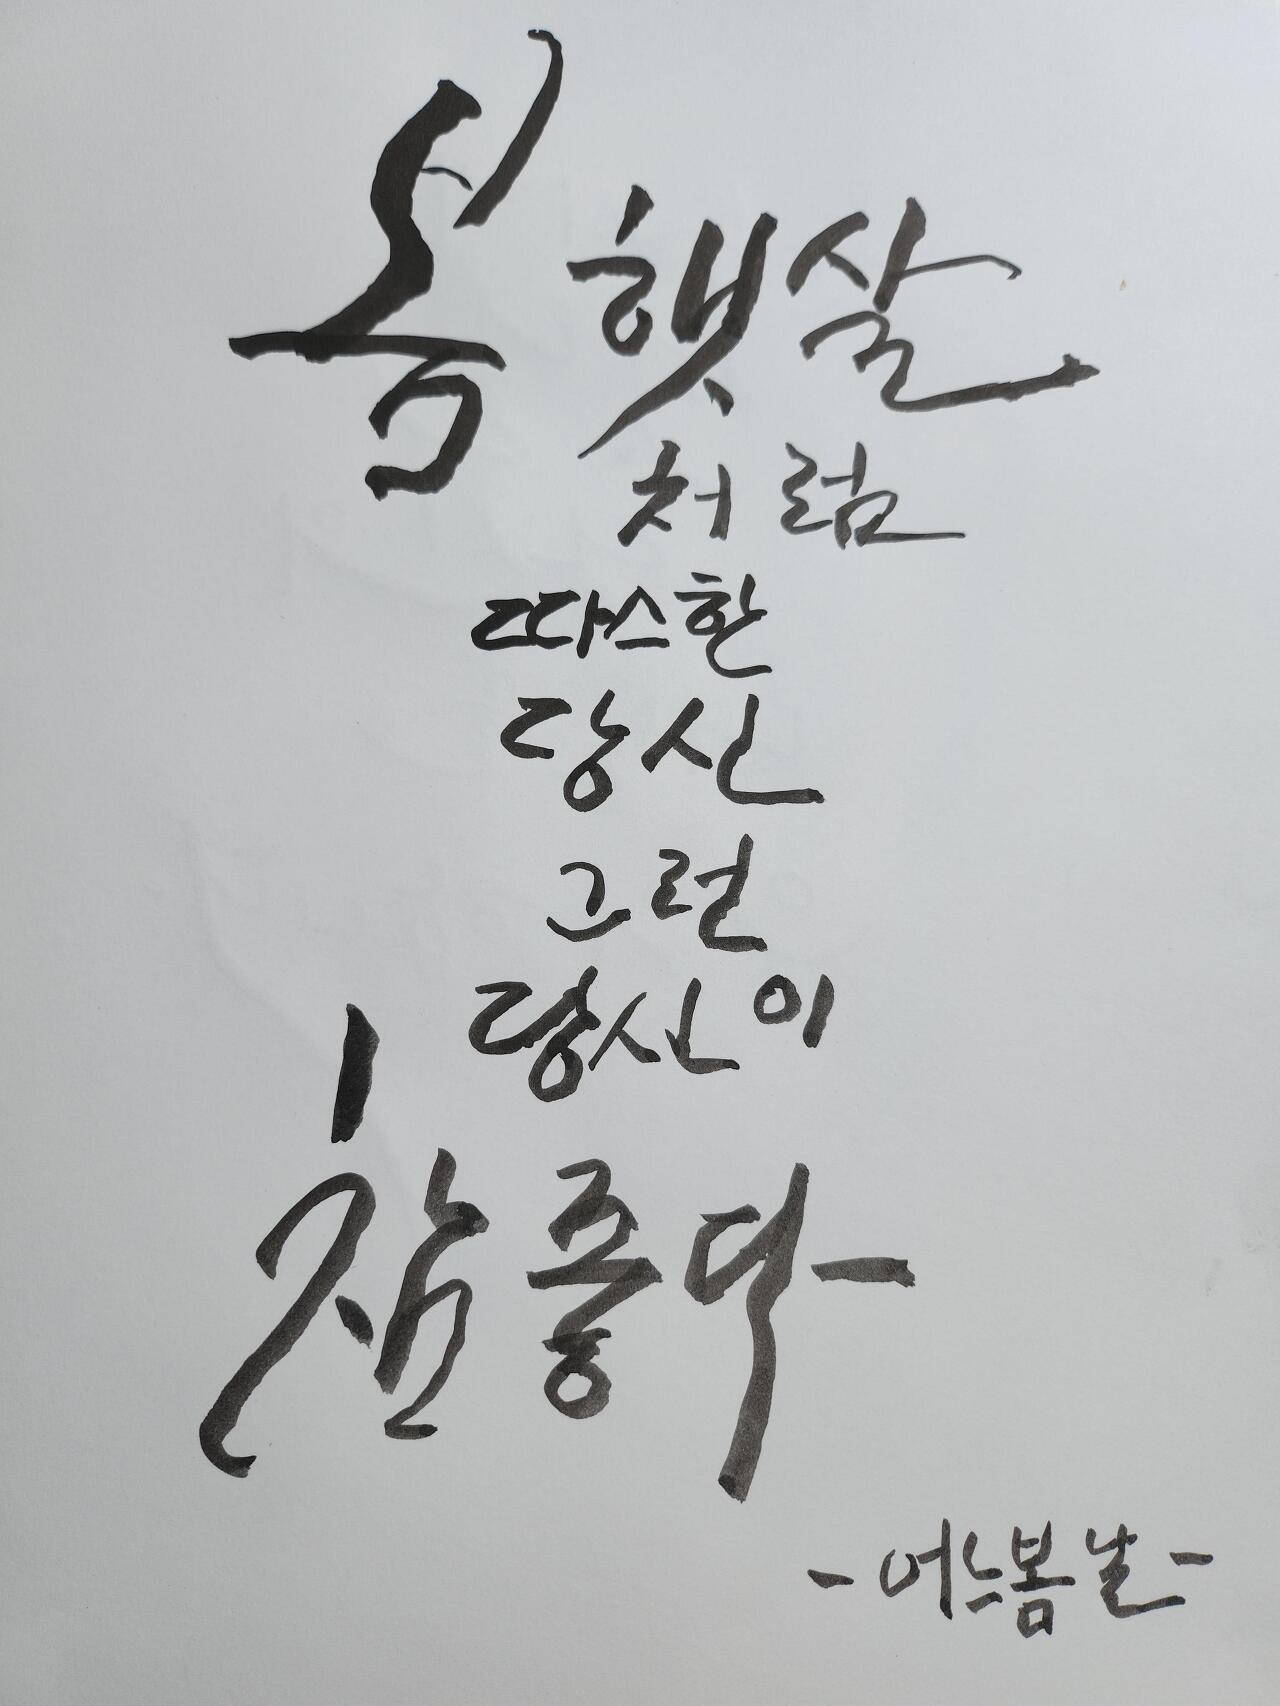 봄 햇살
처럼
따스한
당신
그런
당신이
참 좋다
- 어느 봄날 -